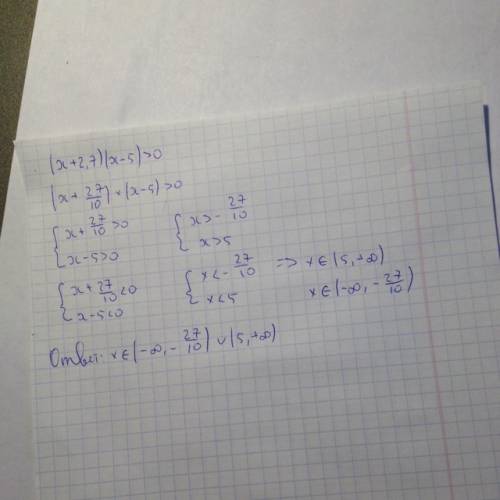 (x+2,7)(x-5)>0
(x+27/10)×(x-5)>0
{x+27/10>0 {x>-27/10
{x-5>0 {x>5
{x+27/10<0 {x<-27/10 => x∈(5,+∞)
{x-5<0 {x<5 x∈(-∞,-27/10)
Ответ: x∈(-∞,-27/10)∪(5,+∞)